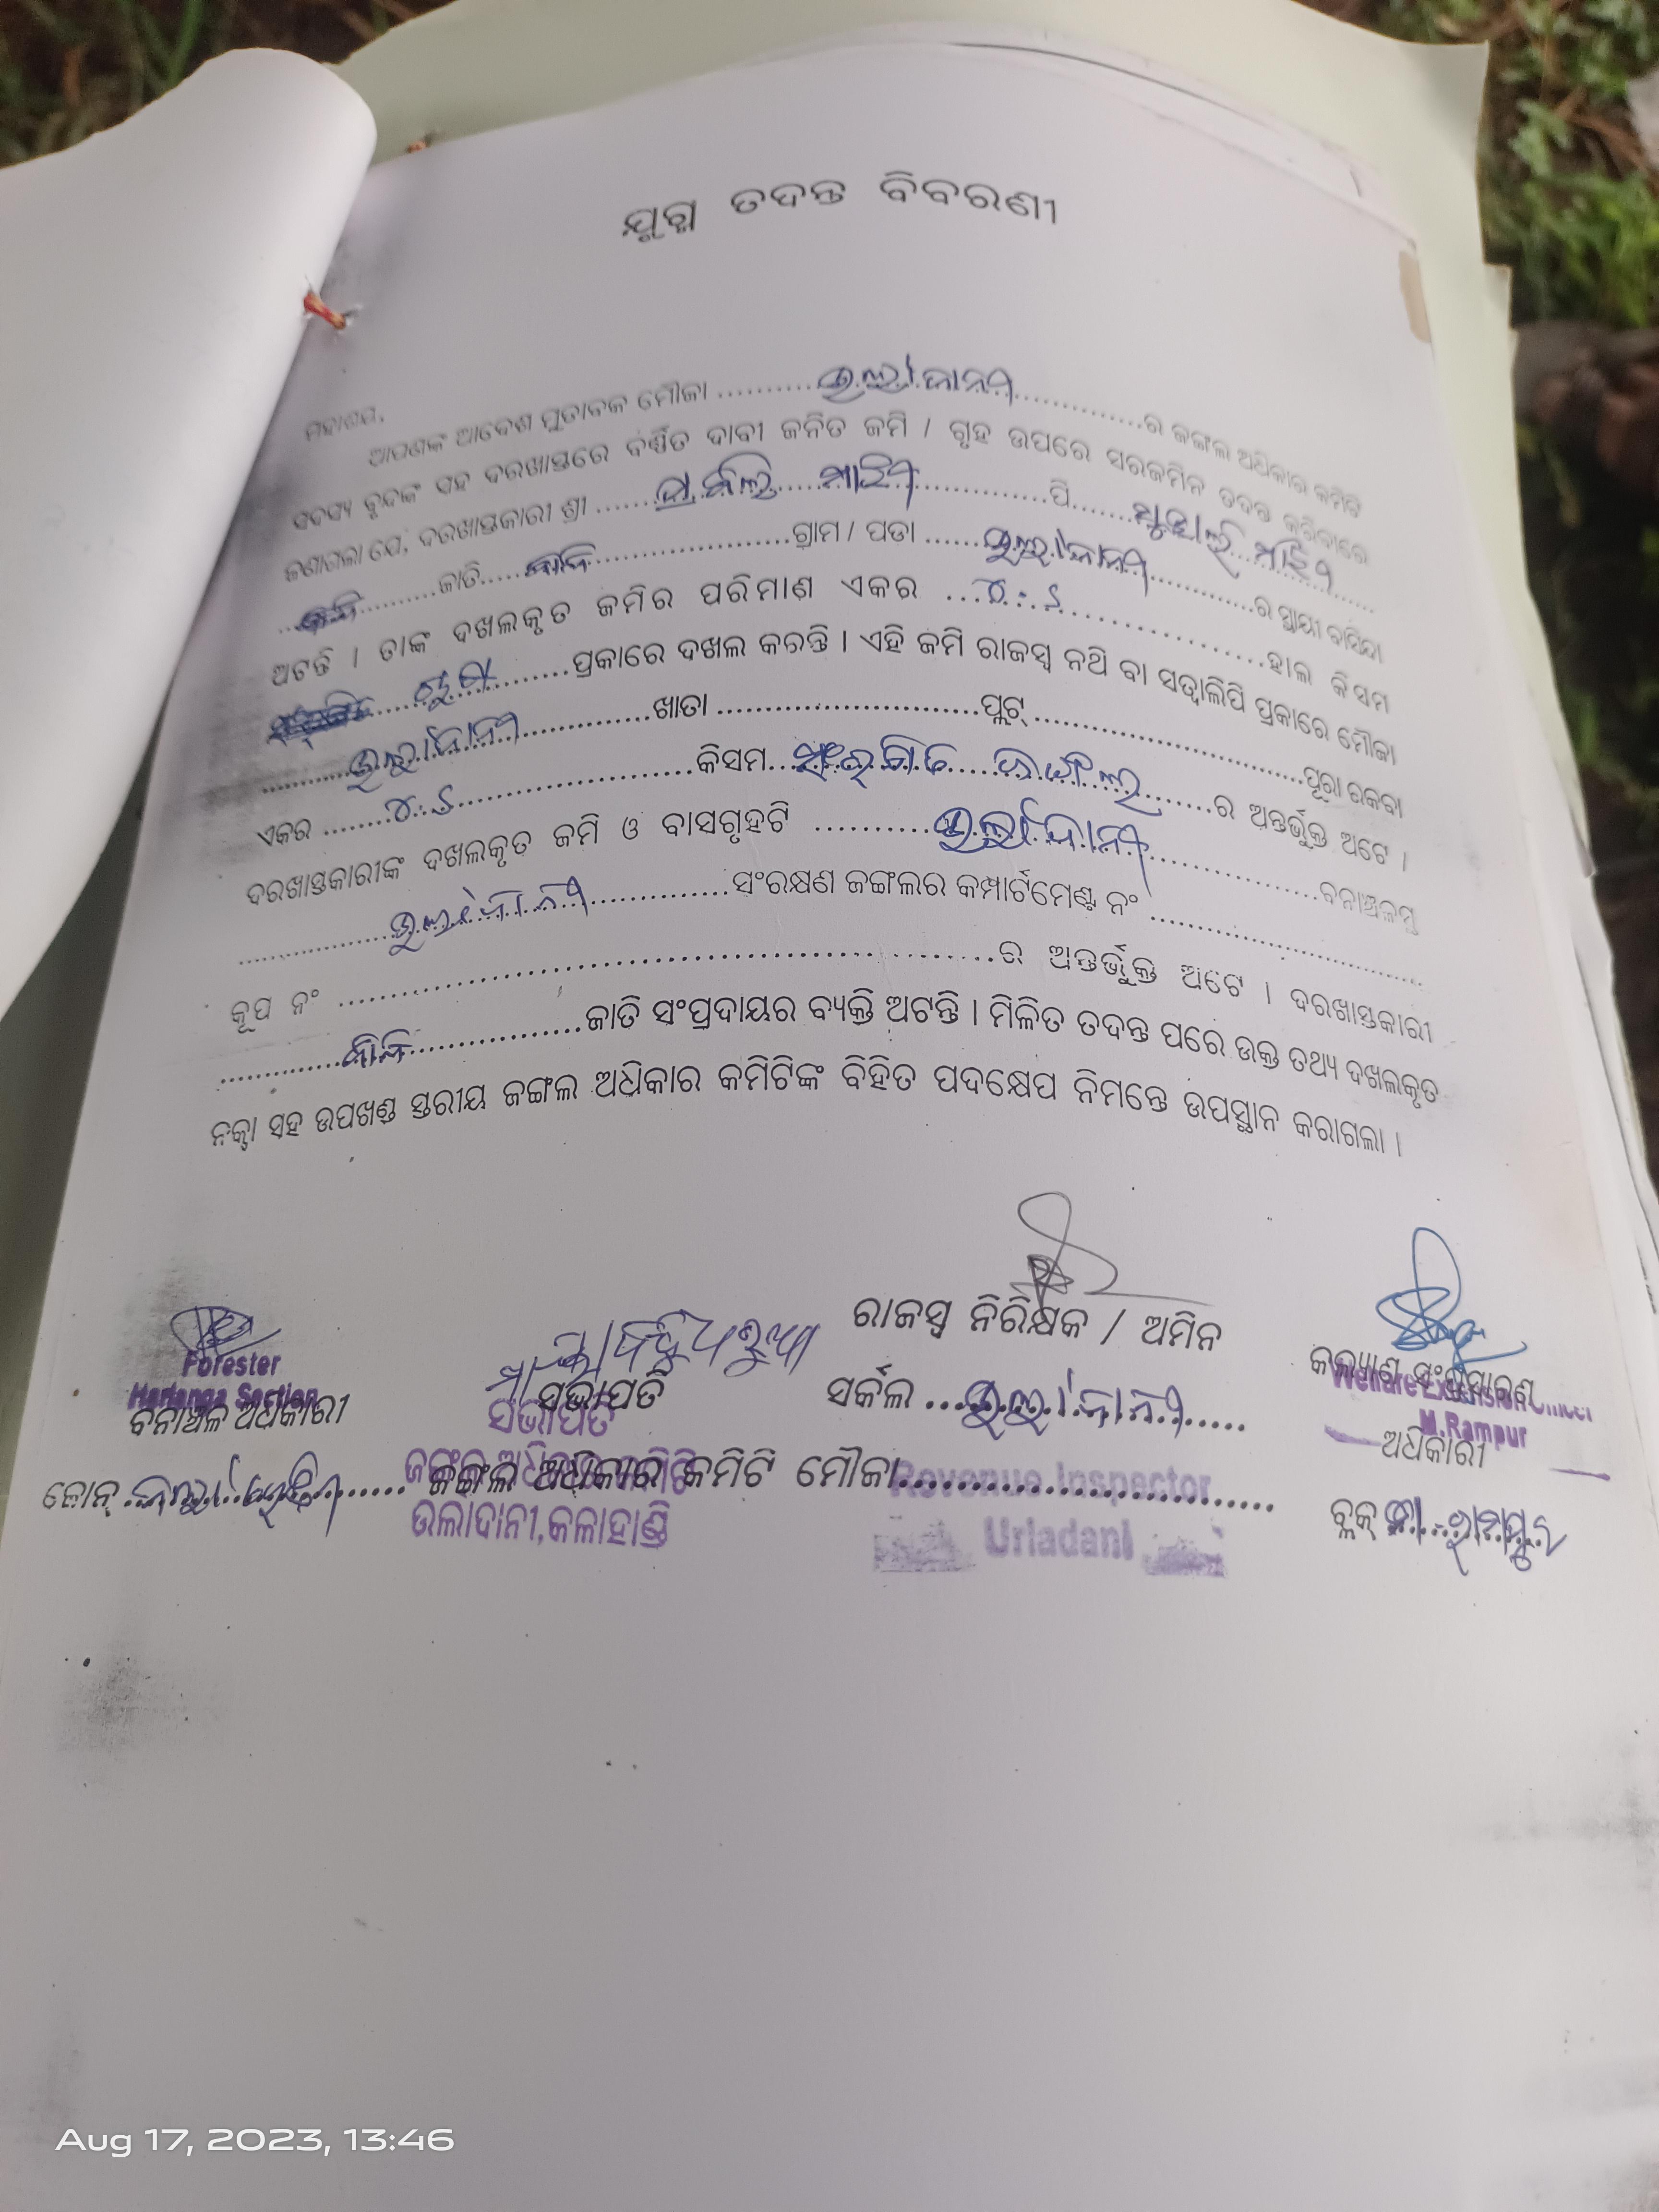 ଯୁଗ୍ମ ତଦନ୍ତ ବିବରଣୀ
ମହାଶୟ,
ଆପଣଙ୍କ ଆଦେଶ ମୁତାବକ ମୌଜା .......... ଉର୍ଲାଦାନୀ .......... ର ଜଙ୍ଗଲ ଅଧିକାର କମିଟି
ସଦସ୍ୟ ବୃନ୍ଦଙ୍କ ସହ ଦରଖାସ୍ତରେ ବର୍ଣ୍ଣିତ ଦାବୀ ଜନିତ ଜମି / ଗୃହ ଉପରେ ସରଜମିନ ତଦନ୍ତ କରିବାରେ
ଜଣାଗଲା ଯେ, ଦରଖାସ୍ତକାରୀ ଶ୍ରୀ .......... ମାଝୀ .......... ପି .......... ମାଝୀ
.......... ଜାତି .......... ଗ୍ରାମ / ପଡା .......... ଉର୍ଲାଦାନୀ .......... ର ସ୍ଥାୟୀ ବାସିନ୍ଦା
ଅଟନ୍ତି । ତାଙ୍କ ଦଖଲକୃତ ଜମିର ପରିମାଣ ଏକର .......... ହାଲ କିସମ
.......... ପ୍ରକାରେ ଦଖଲ କରନ୍ତି । ଏହି ଜମି ରାଜସ୍ୱ ନଥି ବା ସତ୍ୱାଲିପି ପ୍ରକାରେ ମୌଜା
.......... ଉର୍ଲାଦାନୀ .......... ଖାତା .......... ପ୍ଲଟ୍ .......... ପୂରା ରକବା
ଏକର .......... କିସମ .......... ସଂରକ୍ଷିତ ଜଙ୍ଗଲ .......... ର ଅନ୍ତର୍ଭୁକ୍ତ ଅଟେ ।
ଦରଖାସ୍ତକାରୀଙ୍କ ଦଖଲକୃତ ଜମି ଓ ବାସଗୃହଟି .......... ଉର୍ଲାଦାନୀ .......... ବନାଞ୍ଚଳସ୍ଥ
.......... ଉର୍ଲାଦାନୀ .......... ସଂରକ୍ଷଣ ଜଙ୍ଗଲର କମ୍ପାର୍ଟମେଣ୍ଟ ନଂ ..........
କୂପ ନଂ .......... ର ଅନ୍ତର୍ଭୁକ୍ତ ଅଟେ । ଦରଖାସ୍ତକାରୀ
.......... ଜାତି ସଂପ୍ରଦାୟର ବ୍ୟକ୍ତି ଅଟନ୍ତି । ମିଳିତ ତଦନ୍ତ ପରେ ଉକ୍ତ ତଥ୍ୟ ଦଖଲକୃତ
ନକ୍ସା ସହ ଉପଖଣ୍ଡ ସ୍ତରୀୟ ଜଙ୍ଗଲ ଅଧିକାର କମିଟିଙ୍କ ବିହିତ ପଦକ୍ଷେପ ନିମନ୍ତେ ଉପସ୍ଥାନ କରାଗଲା ।
ରାଜସ୍ୱ ନିରିକ୍ଷକ / ଅମିନ
Forester
Section
ବନାଞ୍ଚଳ ଅଧିକାରୀ
ସଭାପତି
ସଭାପତି
ସର୍କଲ ... ଉର୍ଲାଦାନୀ ...
କଲ୍ୟାଣ ସଂପ୍ରସାରଣ
Welfare Extension Officer
M.Rampur
ଅଧିକାରୀ
ଜୋନ୍ .......... ଜଙ୍ଗଲ ଅଧିକାର କମିଟି ମୌଜା ..........
ଜଙ୍ଗଲ ଅଧିକାର କମିଟି
Revenue Inspector
ବ୍ଲକ୍ ମା. ରାମପୁର
ଉଲାଦାନୀ,କଳାହାଣ୍ଡି
Urladani
Aug 17, 2023, 13:46